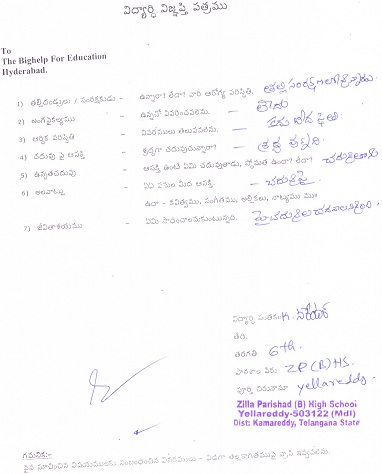 విద్యార్థి విజ్ఞప్తి పత్రము
To
The Bighelp For Education
Hyderabad.
1) తల్లిదండ్రులు / సంరక్షకుడు - ఉన్నారా? లేదా? వారి ఆరోగ్య పరిస్థితి. తల్లి సంరక్షణలో
2) అంగవైకల్యము - ఉన్నచో వివరించవలెను. — లేదు
3) ఆర్థిక పరిస్థితి - వివరములు తెలుపవలెను. —
4) చదువు పై ఆసక్తి - శ్రద్ధగా చదువుచున్నారా? — శ్రద్ధ
5) ఉన్నతచదువు - ఆసక్తి ఉంటే ఏమి చదువుతాడు, స్తోమత ఉందా? లేదా?
6) అలవాట్లు - ఏఏ పనుల మీద ఆసక్తి. —
ఉదా - కవిత్వము, సంగీతము, అల్లికలు, నాట్యము
7) జీవితాశయము - ఏమి సాధించాలనుకుంటున్నది.
విద్యార్థి సంతకం K.
తేది.
తరగతి 6th.
పాఠశాల పేరు ZP(B)HS.
పూర్తి చిరునామా yellareddy
Zilla Parishad (B) High School
Yellareddy-503122 (Mdl)
Dist: Kamareddy, Telangana State
గమనిక:-
పైన సూచించిన విషయములకు సంబంధించిన వివరములు - విడిగా తెల్లకాగితముపై వ్రాసి ఇవ్వవలెను.